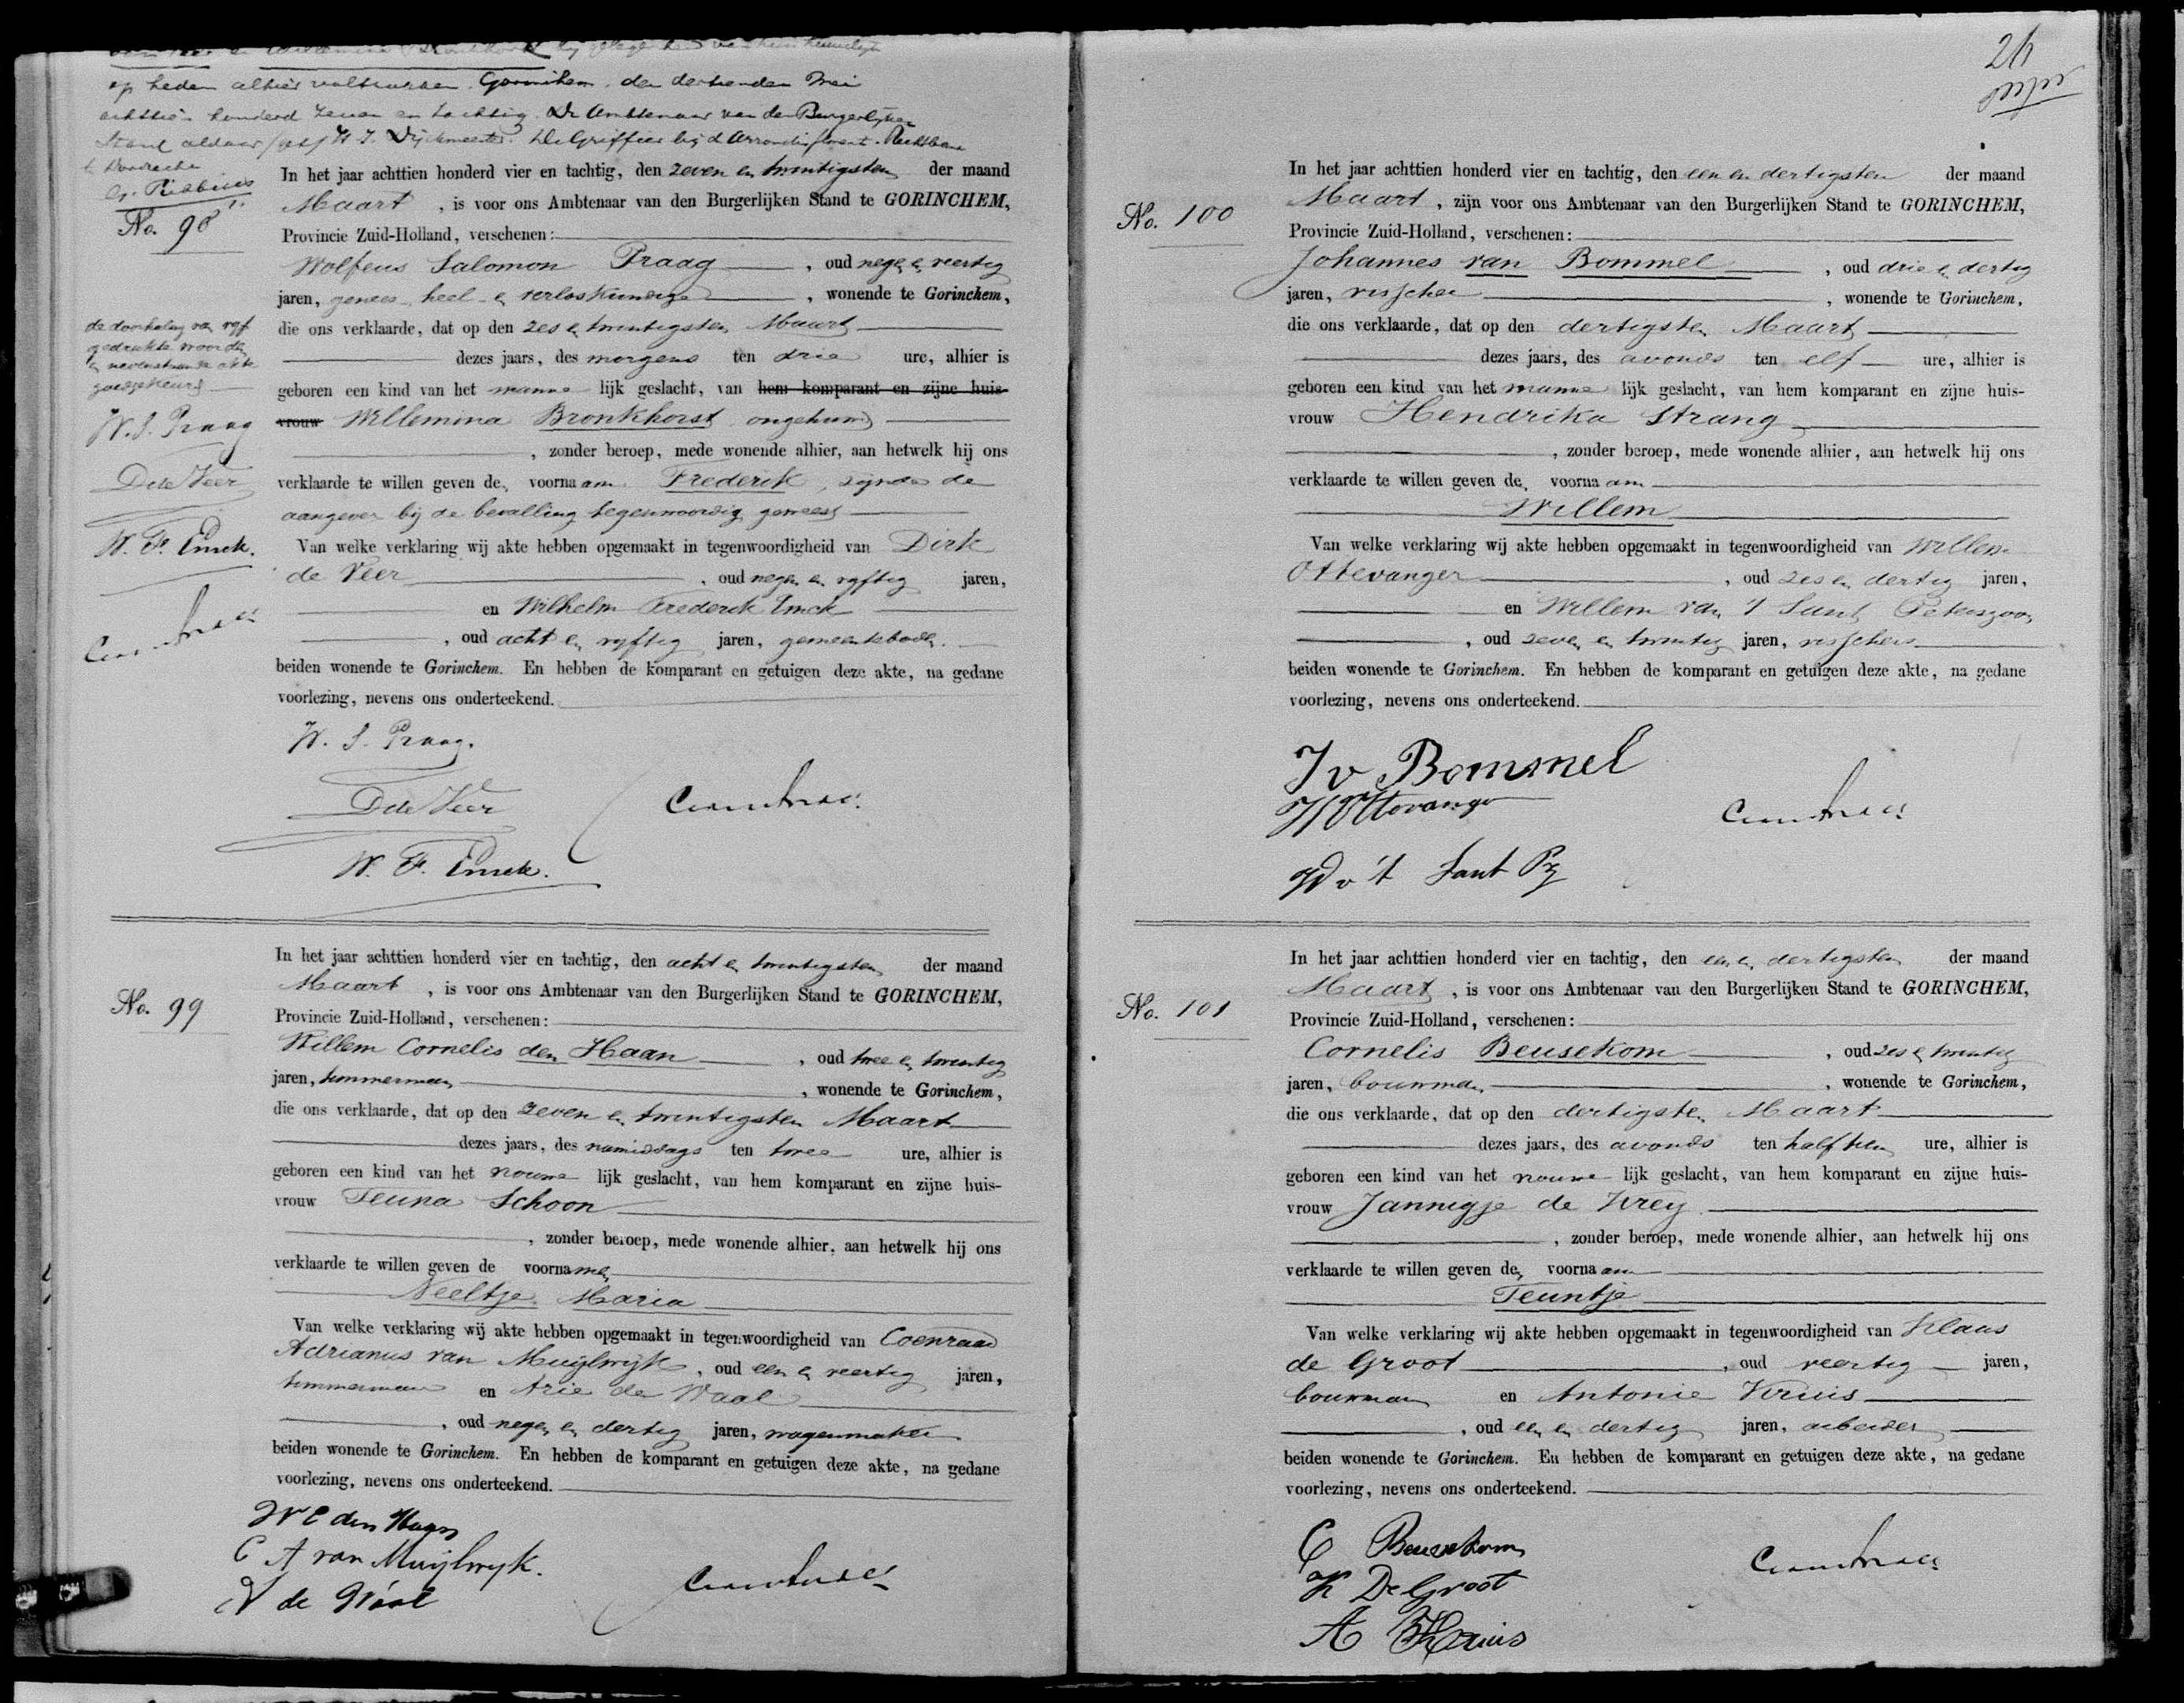 op heden alhier voltrokken. Gorinchem, den dertienden Mei
achttien honderd zeven en tachtig. De Ambtenaar van den Burgerlijken
Stand aldaar De Griffier bij d Arrondissements Rechtbank
te Dordrecht
No. 98
In het jaar achttien honderd vier en tachtig, den zeven en twintigsten der maand
Maart, is voor ons Ambtenaar van den Burgerlijken Stand te GORINCHEM,
Provincie Zuid-Holland, verschenen:
Wolfeus Salomon Praag, oud negen en veertig
jaren, genees- heel- en verloskundige, wonende te Gorinchem,
die ons verklaarde, dat op den zes en twintigsten Maart
dezes jaars, des morgens ten drie ure, alhier is
geboren een kind van het manne lijk geslacht, van hem komparant en zijne huis-
vrouw Willemina Bronkhorst ongehuwd
, zonder beroep, mede wonende alhier, aan hetwelk hij ons
verklaarde te willen geven den voornaam Frederik, zijnde de
aangever bij de bevalling tegenwoordig geweest
Van welke verklaring wij akte hebben opgemaakt in tegenwoordigheid van Dirk
de Veer, oud negen en vyftig jaren,
en Wilhelm Frederik Emck
, oud acht en vyftig jaren, gemeenteboden.
beiden wonende te Gorinchem. En hebben de komparant en getuigen deze akte, na gedane
voorlezing, nevens ons onderteekend.
de doorhaling van vyf
gedrukte woorden
in nevenstaande akte
goedgekeurd
W. S. Praag
D de Veer
W. F. Emck.
W. S. Praag.
D de Veer
W. F. Emck.
No. 99
In het jaar achttien honderd vier en tachtig, den acht en twintigsten der maand
Maart, is voor ons Ambtenaar van den Burgerlijken Stand te GORINCHEM,
Provincie Zuid-Holland, verschenen:
Willem Cornelis den Haan, oud twee en twintig
jaren, timmerman, wonende te Gorinchem,
die ons verklaarde, dat op den zeven en twintigsten Maart
dezes jaars, des namiddags ten twee ure, alhier is
geboren een kind van het vrouwe lijk geslacht, van hem komparant en zijne huis-
vrouw Teuna Schoon
, zonder beroep, mede wonende alhier, aan hetwelk hij ons
verklaarde te willen geven de voornamen
Neeltje Maria
Van welke verklaring wij akte hebben opgemaakt in tegenwoordigheid van Coenraad
Adrianus van Muijlwijk, oud een en veertig jaren,
timmerman en Arie de Waal
, oud negen en dertig jaren, wagenmaker
beiden wonende te Gorinchem. En hebben de komparant en getuigen deze akte, na gedane
voorlezing, nevens ons onderteekend.
W C den Haan
C A van Muijlwijk.
A de Waal
24
No. 100
In het jaar achttien honderd vier en tachtig, den een en dertigsten der maand
Maart, zijn voor ons Ambtenaar van den Burgerlijken Stand te GORINCHEM,
Provincie Zuid-Holland, verschenen:
Johannes van Bommel, oud drie en dertig
jaren, visscher, wonende te Gorinchem,
die ons verklaarde, dat op den dertigsten Maart
dezes jaars, des avonds ten elf ure, alhier is
geboren een kind van het manne lijk geslacht, van hem komparant en zijne huis-
vrouw Hendrika Strang
, zonder beroep, mede wonende alhier, aan hetwelk hij ons
verklaarde te willen geven den voornaam
Willem
Van welke verklaring wij akte hebben opgemaakt in tegenwoordigheid van Willem
Ottevanger, oud zes en dertig jaren,
en Willem van 't Sant Peterszoon
, oud zeven en twintig jaren, visschers
beiden wonende te Gorinchem. En hebben de komparant en getuigen deze akte, na gedane
voorlezing, nevens ons onderteekend.
J v Bommel
W Ottevanger
W v 't Sant Pz
No. 101
In het jaar achttien honderd vier en tachtig, den een en dertigsten der maand
Maart, is voor ons Ambtenaar van den Burgerlijken Stand te GORINCHEM,
Provincie Zuid-Holland, verschenen:
Cornelis Beusekom, oud zes en twintig
jaren, bouwman, wonende te Gorinchem,
die ons verklaarde, dat op den dertigsten Maart
dezes jaars, des avonds ten half tien ure, alhier is
geboren een kind van het vrouwe lijk geslacht, van hem komparant en zijne huis-
vrouw Jannigje de Krey
, zonder beroep, mede wonende alhier, aan hetwelk hij ons
verklaarde te willen geven den voornaam
Teuntje
Van welke verklaring wij akte hebben opgemaakt in tegenwoordigheid van Klaas
de Groot, oud veertig jaren,
bouwman en Antonie Kruis
, oud een en dertig jaren, arbeider
beiden wonende te Gorinchem. En hebben de komparant en getuigen deze akte, na gedane
voorlezing, nevens ons onderteekend.
C Beusekom
K De Groot
A Kruis